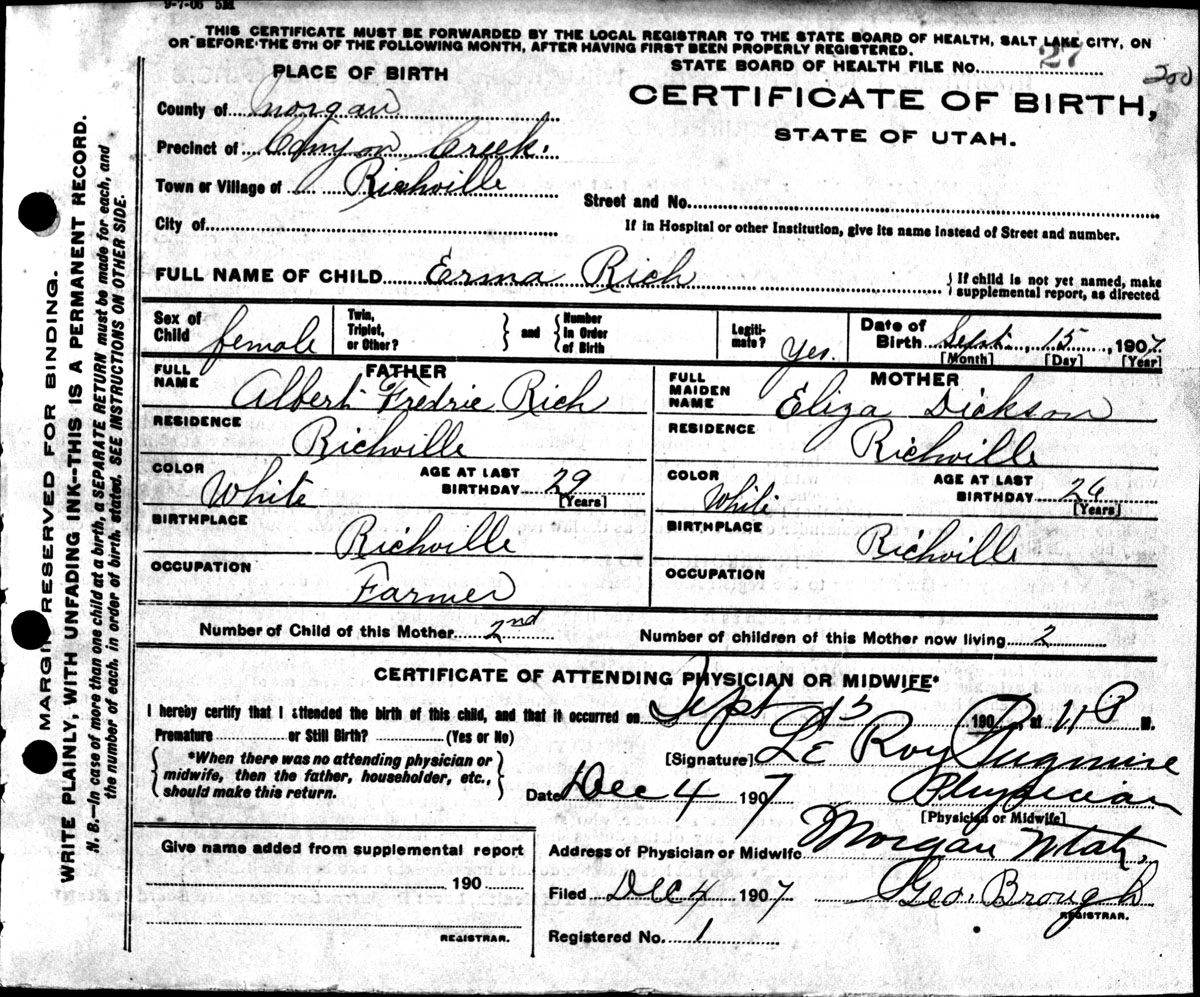 9-7-06 5M
THIS CERTIFICATE MUST BE FORWARDED BY THE LOCAL REGISTRAR TO THE STATE BOARD OF HEALTH, SALT LAKE CITY, ON
OR BEFORE THE 5TH OF THE FOLLOWING MONTH, AFTER HAVING FIRST BEEN PROPERLY REGISTERED.
STATE BOARD OF HEALTH FILE NO. 27
200
PLACE OF BIRTH
CERTIFICATE OF BIRTH,
STATE OF UTAH.
County of Morgan
Precinct of Canyon Creek.
Town or Village of Richville
Street and No.
City of
If in Hospital or other Institution, give its name instead of Street and number.
FULL NAME OF CHILD Erma Rich
} If child is not yet named, make
supplemental report, as directed
Sex of Child female
Twin, Triplet, or Other? } and { Number in Order of Birth
Legiti-mate? Yes.
Date of Birth Sept. 15, 1907.
[Month] [Day] [Year]
FATHER
FULL NAME Albert Fredric Rich
RESIDENCE Richville
COLOR White
AGE AT LAST BIRTHDAY 29
[Years]
BIRTHPLACE Richville
OCCUPATION Farmer
MOTHER
FULL MAIDEN NAME Eliza Dickson
RESIDENCE Richville
COLOR White
AGE AT LAST BIRTHDAY 26
[Years]
BIRTHPLACE Richville
OCCUPATION
Number of Child of this Mother 2nd
Number of children of this Mother now living 2
CERTIFICATE OF ATTENDING PHYSICIAN OR MIDWIFE*
I hereby certify that I attended the birth of this child, and that it occurred on Sept 15 190 at 11 P M.
Premature or Still Birth? (Yes or No)
{ *When there was no attending physician or
midwife, then the father, householder, etc.,
should make this return. }
[Signature] Le Roy
Date Dec 4 1907
Physician
[Physician or Midwife]
Address of Physician or Midwife Morgan Utah,
Give name added from supplemental report
190
REGISTRAR.
Filed Dec 4 1907
Geo. Brough
REGISTRAR.
Registered No. 1
MARGIN RESERVED FOR BINDING.
WRITE PLAINLY, WITH UNFADING INK--THIS IS A PERMANENT RECORD.
N. B.--In case of more than one child at a birth, a SEPARATE RETURN must be made for each, and
the number of each, in order of birth, stated. SEE INSTRUCTIONS ON OTHER SIDE.